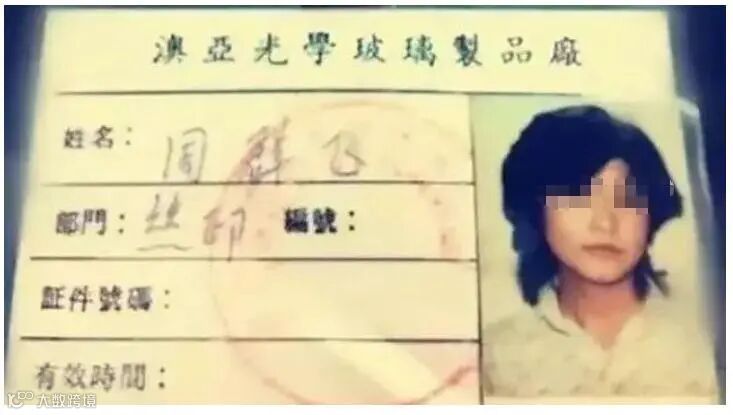 澳亞光學玻璃製品廠
姓名：周群飞
部門：丝印 編號：
証件號碼：
有效時間：
大数跨境